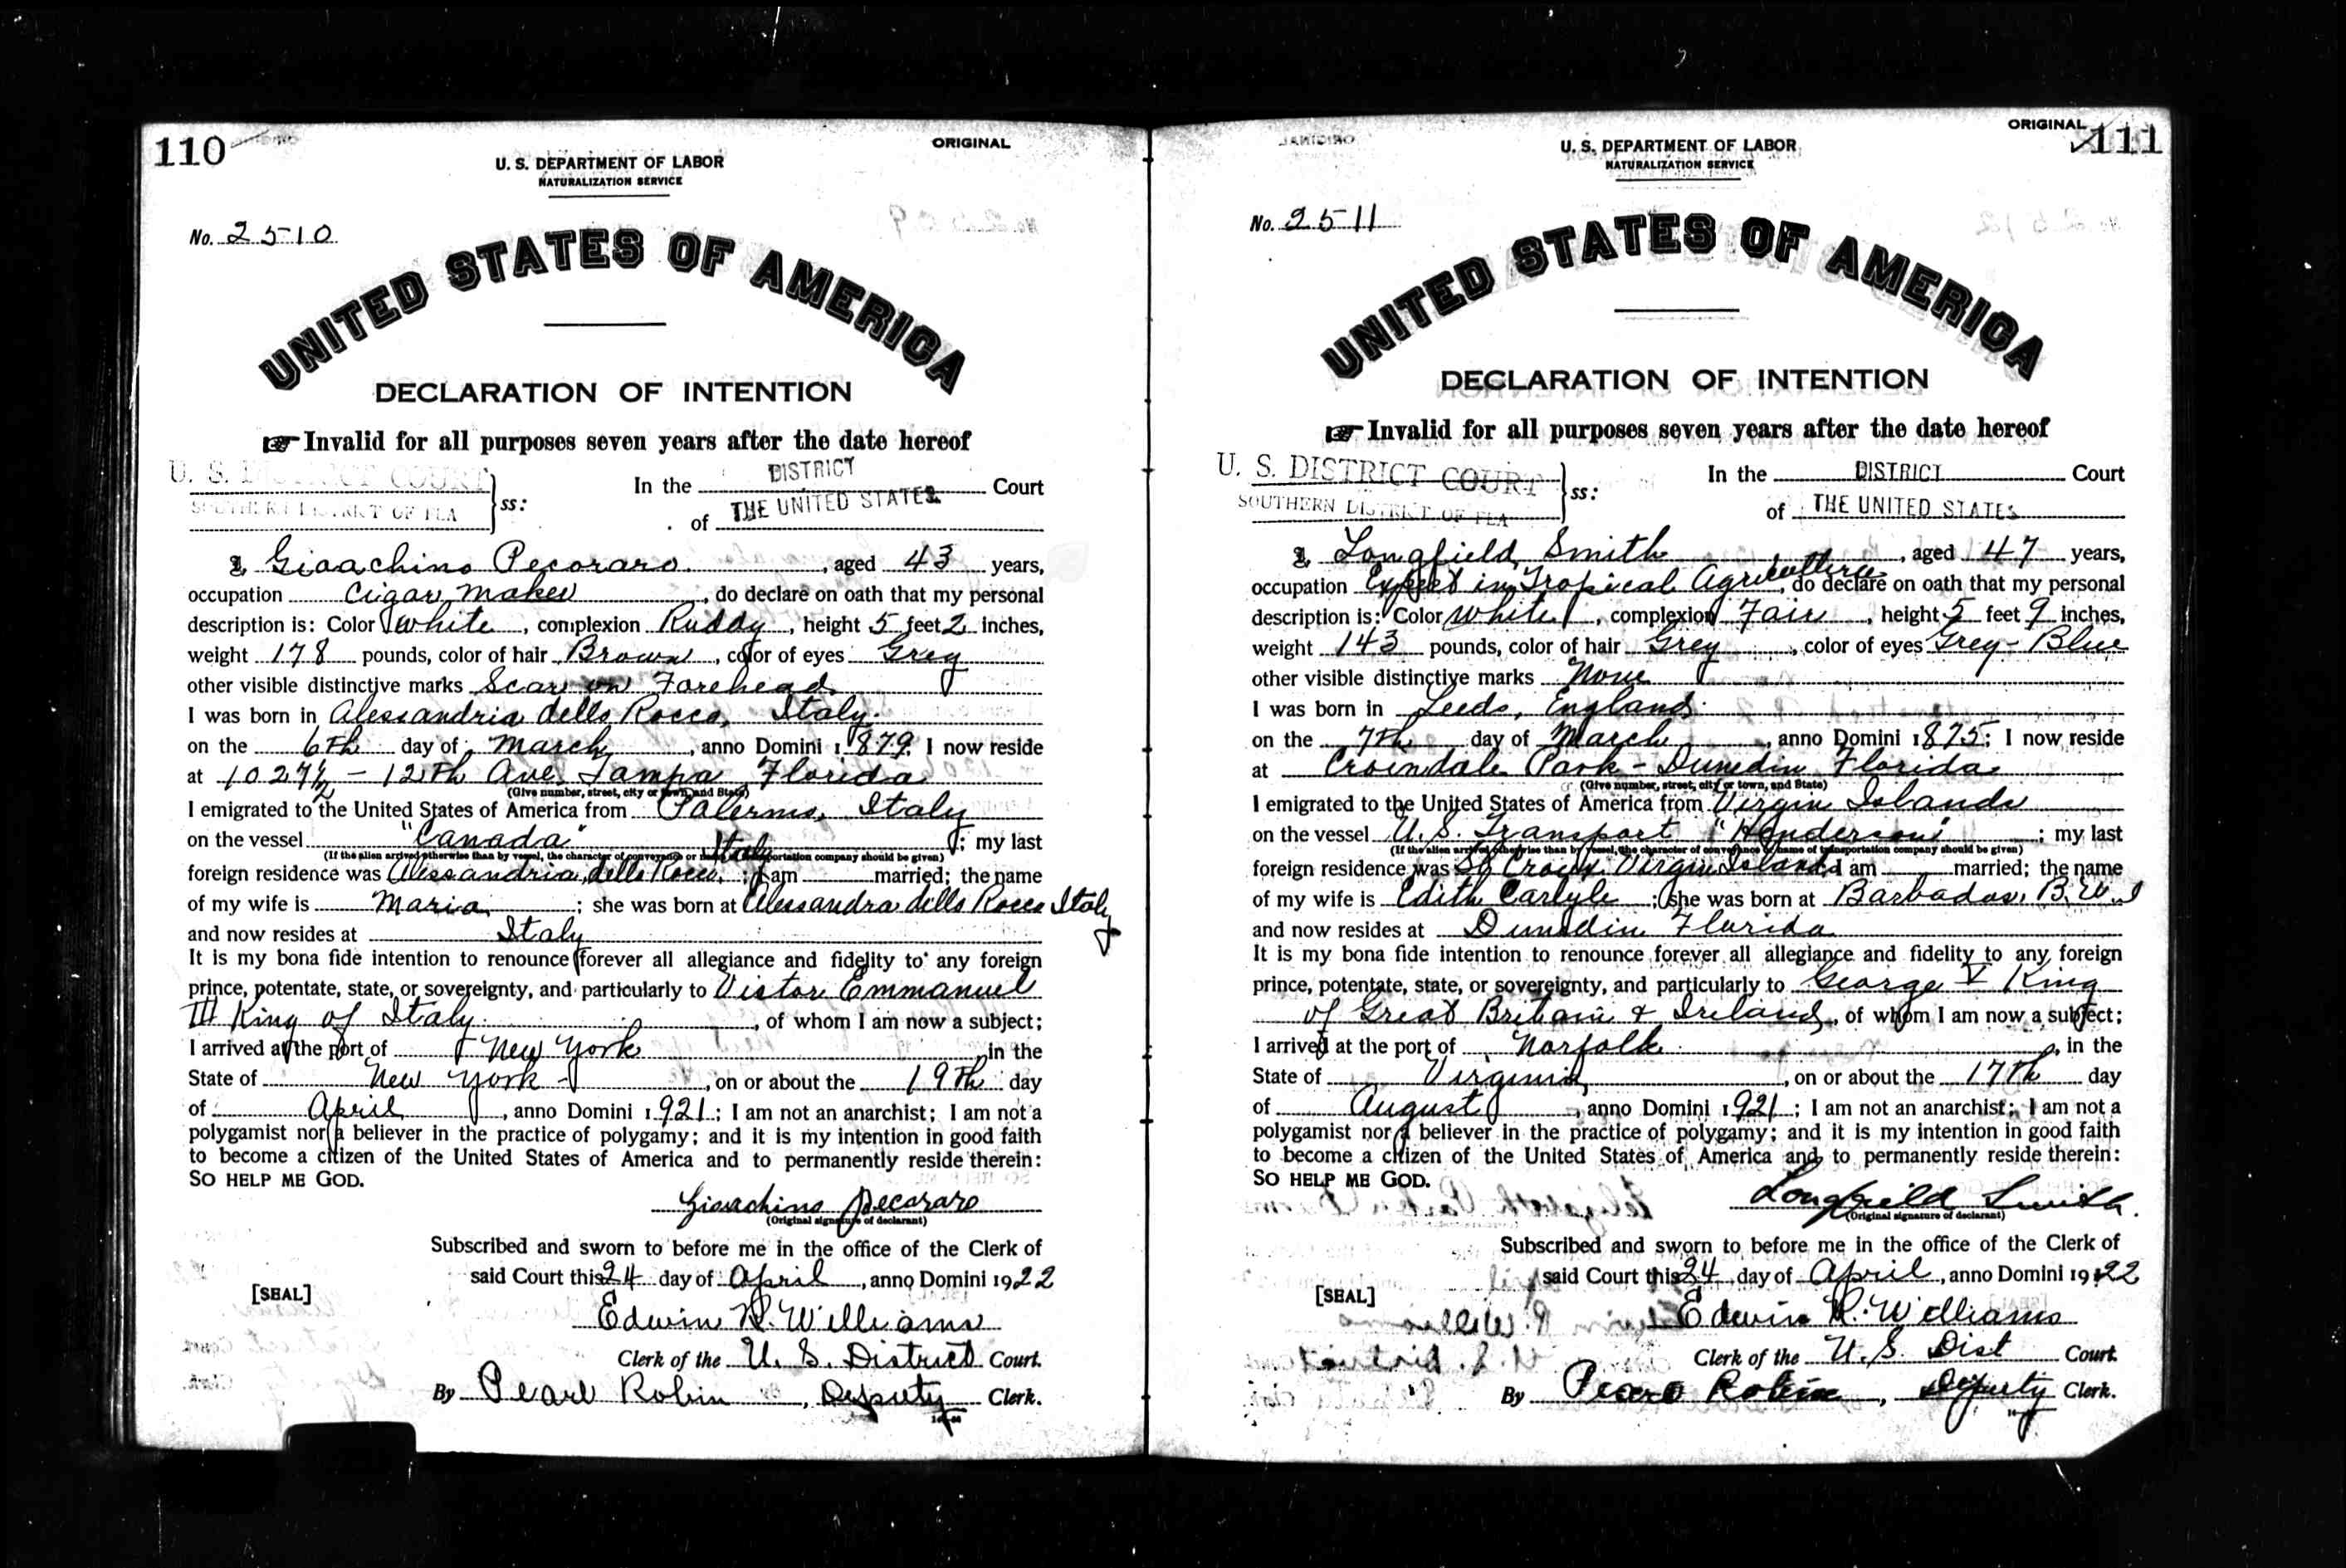 110
ORIGINAL
U. S. DEPARTMENT OF LABOR
NATURALIZATION SERVICE
No. 2510
UNITED STATES OF AMERICA
DECLARATION OF INTENTION
☞ Invalid for all purposes seven years after the date hereof
U. S. DISTRICT COURT
SOUTHERN DISTRICT OF FLA
ss:
In the DISTRICT Court
of THE UNITED STATES
I, Gioachino Pecoraro, aged 43 years,
occupation Cigar maker, do declare on oath that my personal
description is: Color white, complexion Ruddy, height 5 feet 2 inches,
weight 178 pounds, color of hair Brown, color of eyes Grey
other visible distinctive marks Scar on Forehead
I was born in Alessandria dello Rocco, Italy
on the 6th day of March, anno Domini 1879; I now reside
at 1027½ - 12th Ave. Tampa Florida
(Give number, street, city or town, and State)
I emigrated to the United States of America from Palermo, Italy
on the vessel "Canada"; my last
(If the alien arrived otherwise than by vessel, the character of conveyance or name of transportation company should be given)
foreign residence was Alissandria, dello Rocco, Italy; I am married; the name
of my wife is Maria; she was born at Alessandra dello Rocco Italy
and now resides at Italy
It is my bona fide intention to renounce forever all allegiance and fidelity to any foreign
prince, potentate, state, or sovereignty, and particularly to Victor Emmanuel
III King of Italy, of whom I am now a subject;
I arrived at the port of New York, in the
State of New York, on or about the 19th day
of April, anno Domini 1921; I am not an anarchist; I am not a
polygamist nor a believer in the practice of polygamy; and it is my intention in good faith
to become a citizen of the United States of America and to permanently reside therein:
SO HELP ME GOD.
Gioachino Pecoraro
(Original signature of declarant)
Subscribed and sworn to before me in the office of the Clerk of
said Court this 24 day of April, anno Domini 1922
[SEAL]
Edwin R. Williams
Clerk of the U. S. District Court.
By Pearl Robin, Deputy Clerk.
ORIGINAL
111
U. S. DEPARTMENT OF LABOR
NATURALIZATION SERVICE
No. 2511
UNITED STATES OF AMERICA
DECLARATION OF INTENTION
☞ Invalid for all purposes seven years after the date hereof
U. S. DISTRICT COURT
SOUTHERN DISTRICT OF FLA
ss:
In the DISTRICT Court
of THE UNITED STATES
I, Longfield Smith, aged 47 years,
occupation Expert in Tropical Agriculture, do declare on oath that my personal
description is: Color white, complexion Fair, height 5 feet 9 inches,
weight 143 pounds, color of hair Grey, color of eyes Grey-Blue
other visible distinctive marks None
I was born in Leeds, England
on the 7th day of March, anno Domini 1875; I now reside
at Park - Dunedin Florida
(Give number, street, city or town, and State)
I emigrated to the United States of America from Virgin Islands
on the vessel U. S. Transport "Henderson"; my last
(If the alien arrived otherwise than by vessel, the character of conveyance or name of transportation company should be given)
foreign residence was St Croix Virgin Islands; I am married; the name
of my wife is Edith Carlyle; she was born at Barbados, B.W.I
and now resides at Dunedin Florida
It is my bona fide intention to renounce forever all allegiance and fidelity to any foreign
prince, potentate, state, or sovereignty, and particularly to George V King
of Great Britain & Ireland, of whom I am now a subject;
I arrived at the port of Norfolk, in the
State of Virginia, on or about the 17th day
of August, anno Domini 1921; I am not an anarchist; I am not a
polygamist nor a believer in the practice of polygamy; and it is my intention in good faith
to become a citizen of the United States of America and to permanently reside therein:
SO HELP ME GOD.
Longfield Smith.
(Original signature of declarant)
Subscribed and sworn to before me in the office of the Clerk of
said Court this 24 day of April, anno Domini 1922
[SEAL]
Edwin R. Williams
Clerk of the U. S. Dist Court.
By Pearl Robin, Deputy Clerk.